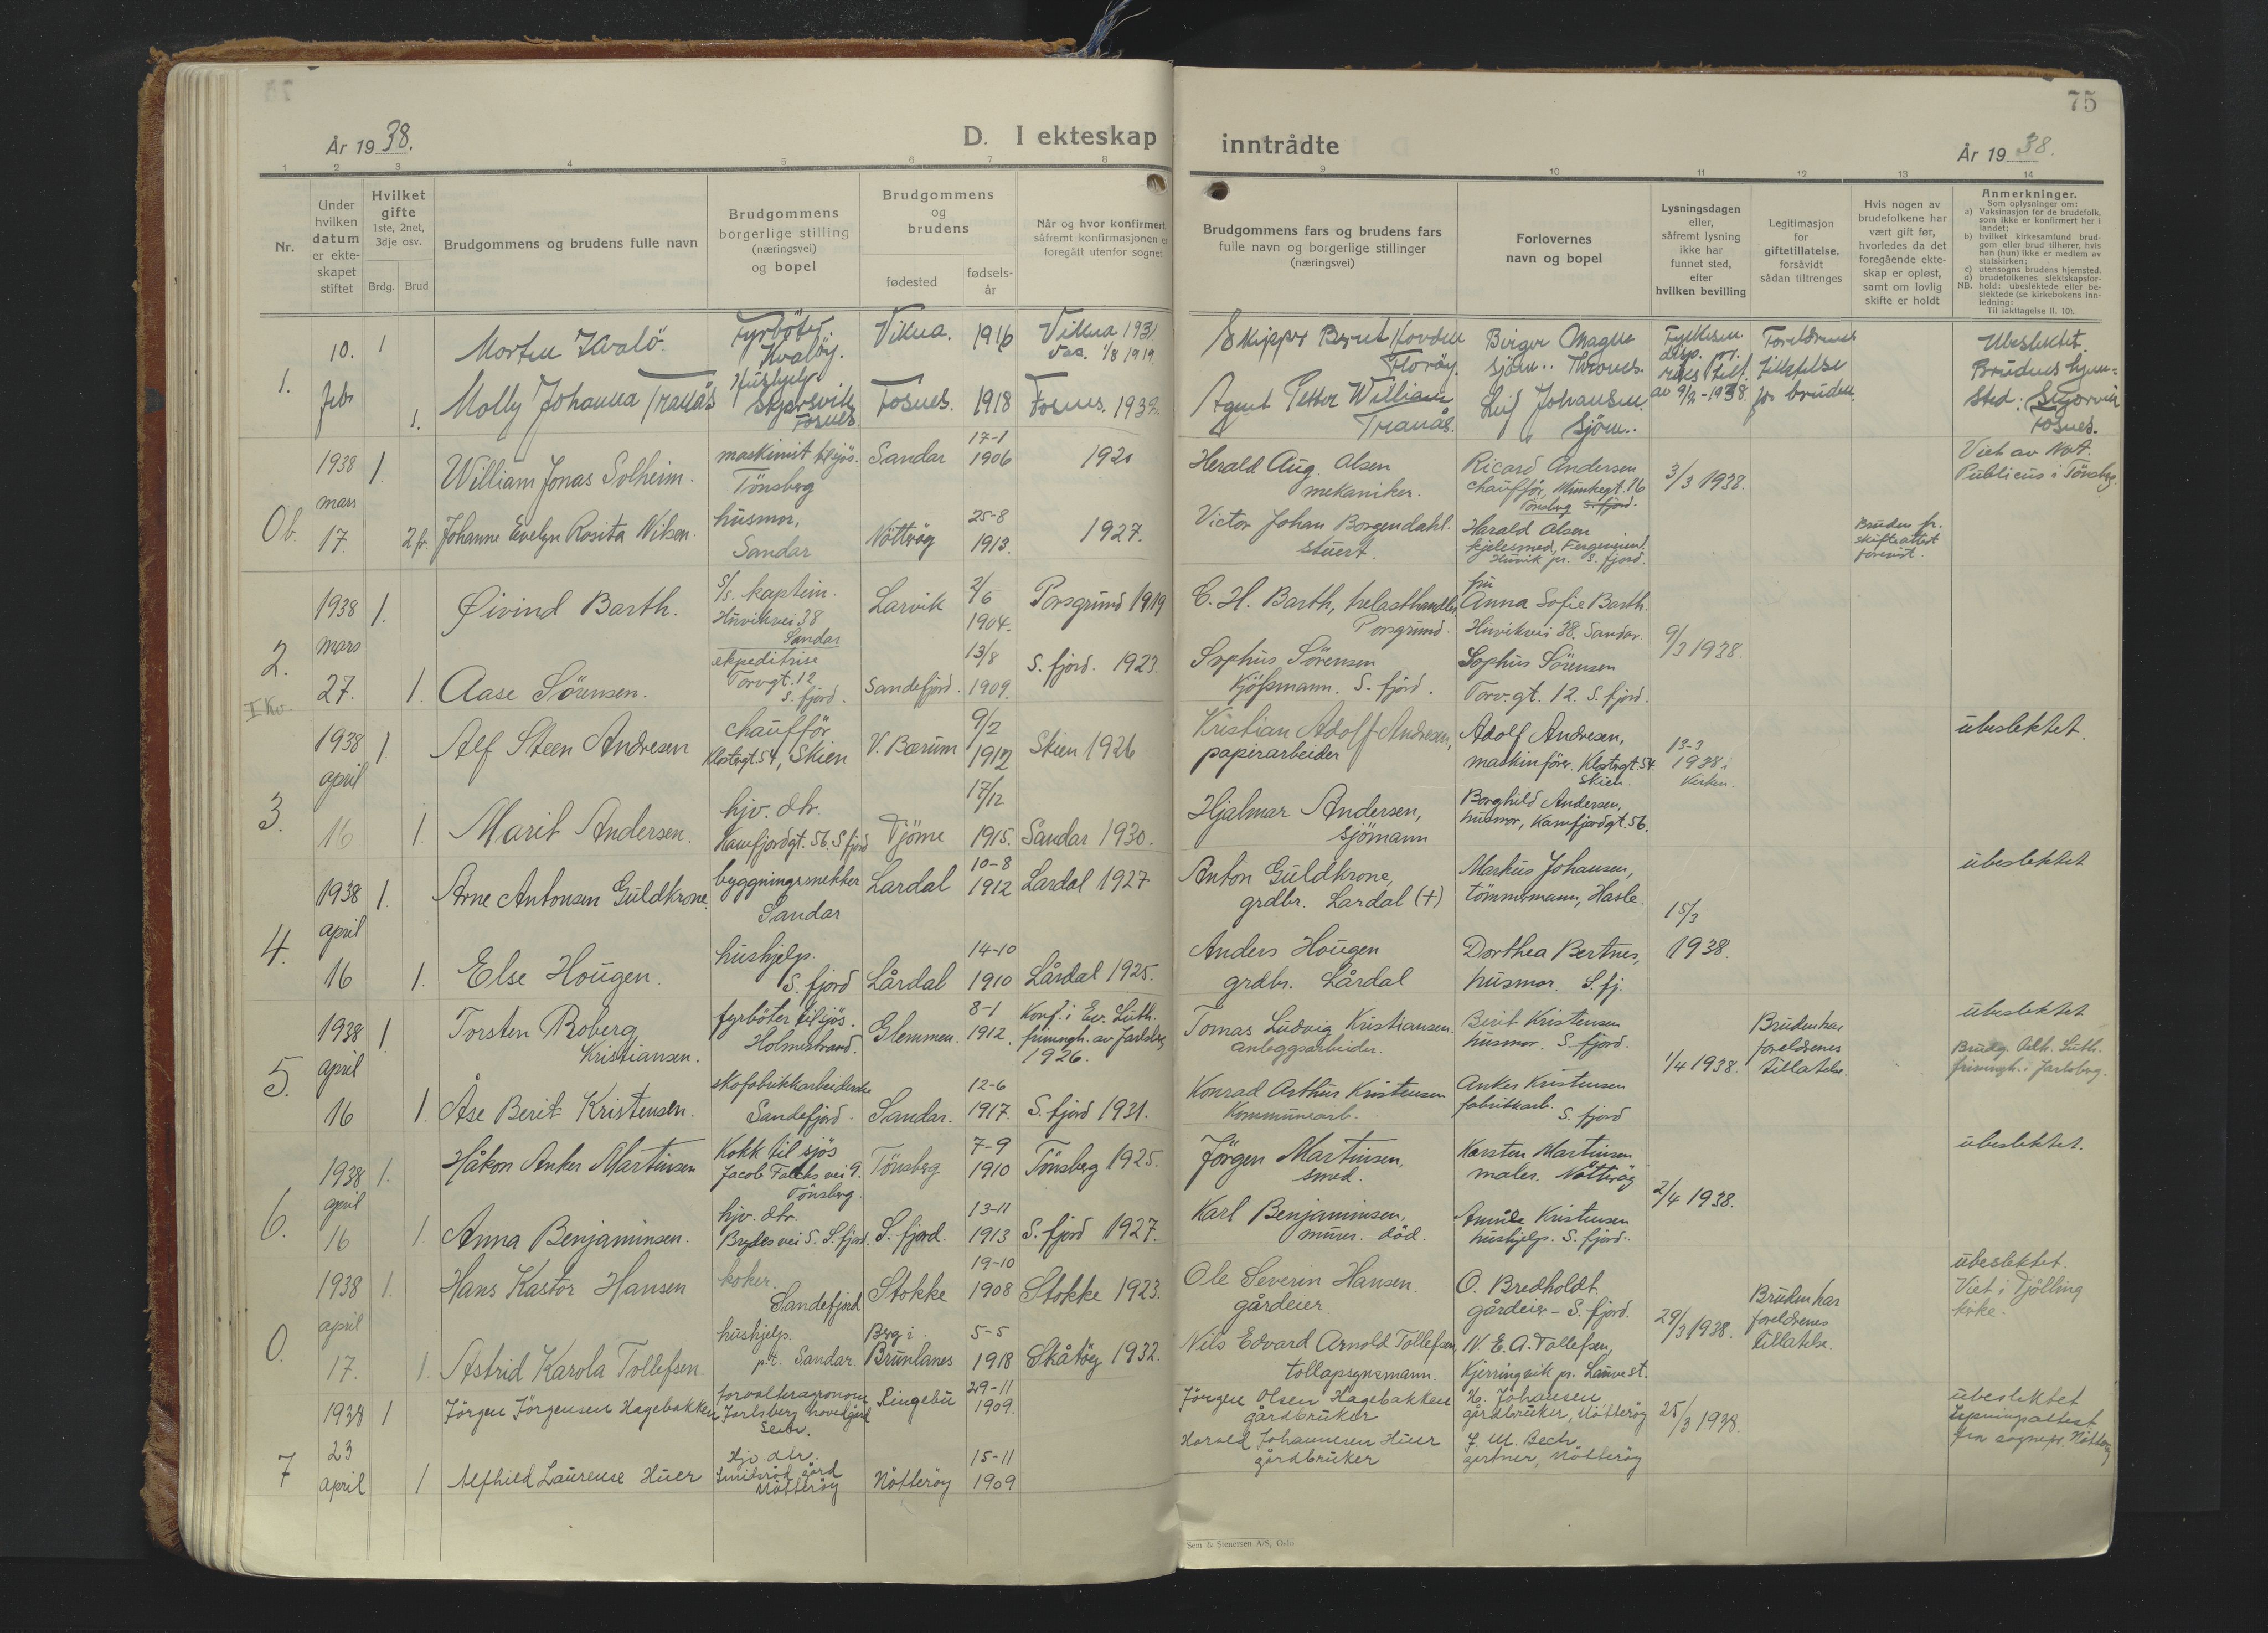 75
År 1938.
D. I ekteskap inntrådte
År 1938.
1 2 3 4 5 6 7 8 9 10 11 12 13 14
Nr.
Under hvilken datum er ekteskapet stiftet
Hvilket gifte 1ste, 2net, 3dje osv.
Brdg. Brud
Brudgommens og brudens fulle navn
Brudgommens borgerlige stilling (næringsvei) og bopel
Brudgommens og brudens
fødested
fødselsår
Når og hvor konfirmert, såfremt konfirmasjonen er foregått utenfor sognet
Brudgommens fars og brudens fars fulle navn og borgerlige stillinger (næringsvei)
Forlovernes navn og bopel
Lysningsdagen eller, såfremt lysning ikke har funnet sted, efter hvilken bevilling
Legitimasjon for giftetillatelse, forsåvidt sådan tiltrenges
Hvis nogen av brudefolkene har vært gift før, hvorledes da det foregående ekteskap er opløst, samt om lovlig skifte er holdt
Anmerkninger.
Som oplysninger om:
a) Vaksinasjon for de brudefolk, som ikke er konfirmert her i landet;
b) hvilket kirkesamfund brudgom eller brud tilhører, hvis han (hun) ikke er medlem av statskirken;
c) utensogns brudens hjemsted.
d) brudefolkenes slektskapsforhold: ubeslektede eller beslektede (se kirkebokens innledning:
NB.
Til iakttagelse ll. 10).
1.
10. febr
1 Morten Kvalö.
Fyrböter. Kvalöy.
Vikna. 1916
Vikna 1931
Vac. 1/8 1919
Skipper Bernt Hovden
Florøy.
Birger Magnus
sjöm.. Thrones.
Fylkesm. disp.
av 9/2-1938.
Foreldrenes tillatelse for bruden.
Ubeslektet.
Brudens hjemsted: Skjærvik Fosnes.
1. Molly Johanna Tranås
Hushjelp
Skjærsvik Fosnes
Fosnes. 1918 Fosnes. 1932.
Agent Petter William
Tranås.
Leif Johansen.
Sjöm..
Ob.
1938 mars 17.
1. William Jonas Solheim.
maskinist tilsjös.
Tönsberg
Sandar 17-1 1906
1920
Herald Aug. Olsen
mekaniker.
Ricard Andersen
chauffør, Munkegt. 26
Tönsberg S. fjord.
3/3 1938.
Viet av Not. Publicus i Tönsbg.
2 fr. Johanne Evelyn Rosita Nilsen.
husmor,
Sandar
Nötteröy 25-8 1913.
1927.
Victor Johan Borgendahl.
stuert.
Harald Olsen
kjelesmed, Fergeveien
Huvik pr. S. fjord.
Bruden fr. skifteattest forevist.
2.
I Kv.
1938 mars 27.
1. Øivind Barth.
S/s. kaptein.
Huvikvei 38
Sandar
Larvik 2/6 1904.
Porsgrund 1919
C. H. Barth, trelasthandler,
Porsgrund.
fru
Anna Sofie Barth.
Huvikvei 38. Sandar.
9/3 1938.
1. Aase Sörensen.
ekspeditrise
Torvgt. 12
S. fjord.
Sandefjord. 13/8 1909.
S. fjord. 1923.
Sophus Sörensen
Kjöpmann. S. fjord.
Sophus Sörensen
Torv. gt. 12. S. fjord.
3.
1938 april 16
1. Alf Steen Andresen
chaufför
Klostergt. 54, Skien
V. Bærum 9/2 1912
Skien 1926
Kristian Adolf Andresen,
papirarbeider
Adolf Andresen,
maskinförer. Klostergt. 54.
Skien.
13-3
1938 i
Kirken.
ubeslektet.
1. Marit Andersen.
hjv. dtr.
Kamfjordgt. 56. S fjord
Tjöme 17/12 1915.
Sandar 1930.
Hjalmar Andersen,
sjömann
Borghild Andersen,
husmor, Kamfjordgt. 56.
4.
1938 april 16
1. Arne Antonsen Guldkrone.
byggningssnekker
Sandar
Lardal 10-8 1912
Lardal 1927
Anton Guldkrone,
grdbr. Lardal (†)
Markus Johansen,
tömmermann, Hasle.
15/3
1938.
ubeslektet
1. Else Hougen.
hushjelp.
S. fjord
Lårdal 14-10 1910
Lårdal 1925.
Anders Hougen
grdbr. Lårdal
Dorthea Bertnes,
husmor. S. fj.
5.
1938 april 16
1. Torsten Roberg
Kristiansen.
fyrböter tilsjös.
Holmestrand.
Glemmen. 8-1 1912.
Konf. i Ev. Luth.
frimngh. av Jarlsberg
1926.
Tomas Ludvig Kristiansen.
anleggsarbeider.
Berit Kristensen
husmor. S. fjord.
1/4 1938.
Bruden har
foreldrenes
tillatelse.
ubeslektet
Brudg. Luth.
frimngh. i Jarlsberg.
1. Åse Berit Kristensen.
skofabrikkarbeiderske
Sandefjord.
Sandar. 12-6 1917.
S. fjord 1931.
Konrad Arthur Kristensen
Kommunearb.
Anker Kristensen
fabrikkarb.
S. fjord
6.
1938 april 16
1. Håkon Anker Martinsen
Kokk til sjös
Jacob Falchs vei 9.
Tönsberg.
Tönsberg 7-9 1910
Tönsberg 1925.
Jörgen Martinsen,
smed.
Karsten Martinsen
maler. Nötteröy
2/4 1938.
ubeslektet.
1. Anna Benjaminsen.
hjv. dtr.
Brydes vei 5. S. fjord.
S. fjord. 13-11 1913
S. fjord 1927.
Karl Benjaminsen,
murer. död.
Kristensen
hushjelp. S. fjord.
0.
1938 april 17.
1. Hans Kastor Hansen
koker.
Sandefjord
Stokke 19-10 1908
Stokke 1923.
Ole Severin Hansen.
gårdeier.
O. Bredholdt
gårdeier - S. fjord.
29/3 1938.
Bruden har
foreldrenes
tillatelse.
ubeslektet.
Viet i Tjölling
kirke.
1. Astrid Karola Tollefsen.
hushjelp.
p.t. Sandar.
Berg i
Brunlanes 5-5 1918
Skåtöy 1932.
Nils Edvard Arnold Tollefsen,
tollopsynsmann.
N. E. A. Tollefsen,
Kjerringvik pr. Lauve st.
7
1938 23 april
1 Jörgen Jörgensen Hagebakken
forvalteragronom
Jarlsberg hovedgård
Sem.
Ringebu 29-11 1909.
Jörgen Olsen Hagebakken
gårdbruker
H. Johansen
gårdbruker, Nötteröy
25/3 1938.
ubeslektet
Lysningsattest
fra sognepr. Nötteröy
1 Alfhild Laurense Huer
Hjv. dtr.
Smidsröd gård
Nötteröy
Nötteröy 15-11 1909
Harald Johannesen Huer
gårdbruker
F. M. Bech
gartner, Nötteröy
Sem & Stenersen A/S, Oslo